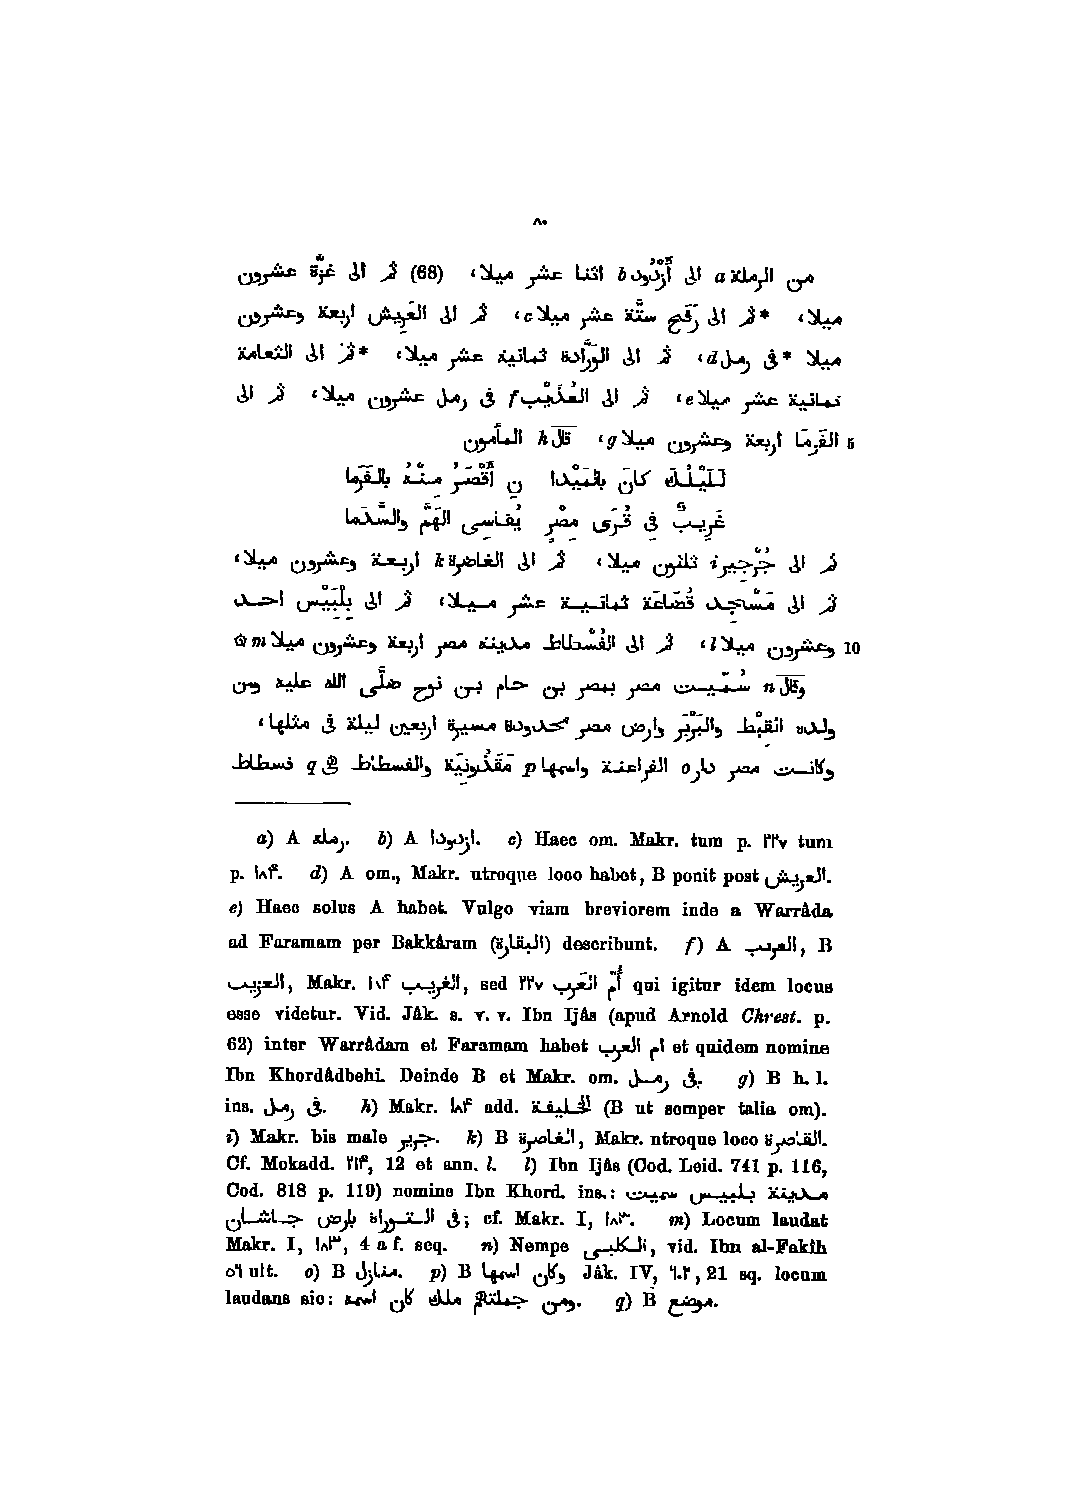 ٨٠
من الرملة a الى أَزْدُود b اثنا عشر ميلا، (68) ثمّ الى غَزَّة عشرون
ميلا، *ثمّ الى رَفَح ستَّة عشر ميلا c، ثمّ الى العَرِيش اربعة وعشرون
ميلا *فى رمل d، ثمّ الى الوَرَّادة ثمانية عشر ميلا، *ثمّ الى الثعامة
ثمانية عشر ميلا e، ثمّ الى العُذَيْب f فى رمل عشرون ميلا، ثمّ الى
5 الفَرَمَا اربعة وعشرون ميلا g، قال h المأمون
لَلَيْلُكَ كانَ بالمَيْدا نِ أَقْصَرُ مِنْهُ بالفَرَما
غَرِيبٌ فِى قُرَى مِصْرٍ يُقاسِى الهَمَّ والسَّدَما
ثمّ الى جُرْجِير i ثلثون ميلا، ثمّ الى الغاضرة k اربعة وعشرون ميلا،
ثمّ الى مَسْجِد قُضَاعَة ثمانية عشر ميلا، ثمّ الى بِلْبَيْس احد
10 وعشرون ميلا l، ثمّ الى الفُسْطاط مدينة مصر اربعة وعشرون ميلا m ۞
وقال n سُمِّيت مصر بمصر بن حام بن نوح صلَّى الله عليه ومن
ولده القِبْط والبَرْبَر وارض مصر محدودة مسيرة اربعين ليلة فى مثلها،
وكانت مصر دار o الفراعنة واسمها p مَقَذُونِيَة والفسطاط هى q فسطاط
a) A رملة. b) A ازدودا. c) Haec om. Makr. tum p. ٢٢٧ tum
p. ١٨٤. d) A om., Makr. utroque loco habet, B ponit post العريش.
e) Haec solus A habet. Vulgo viam breviorem inde a Warrâda
ad Faramam per Bakkâram (البقارة) describunt. f) A العريب, B
العزيب, Makr. ١٨٤ الغريب, sed ٢٢٧ أُمّ العَرَب qui igitur idem locus
esse videtur. Vid. Jâk. s. v. v. Ibn Ijâs (apud Arnold Chrest. p.
62) inter Warrâdam et Faramam habet ام العرب et quidem nomine
Ibn Khordâdbehi. Deinde B et Makr. om. فى رمل. g) B h. l.
ins. فى رمل. h) Makr. ١٨٤ add. الخليفة (B ut semper talia om).
i) Makr. bis male جرير. k) B الغاصرة, Makr. utroque loco القاصرة.
Cf. Mokadd. ٢١٤, 12 et ann. l. l) Ibn Ijâs (Cod. Leid. 741 p. 116,
Cod. 818 p. 119) nomine Ibn Khord. ins.: مدينة بلبيس سميت
فى التوراة بارض جاشان; cf. Makr. I, ١٨٣. m) Locum laudat
Makr. I, ١٨٣, 4 a f. seq. n) Nempe الكلبى, vid. Ibn al-Fakîh
٥٦ ult. o) B منازل. p) B وكان اسمها Jâk. IV, ٦٠٢, 21 sq. locum
laudans sic: ومن جملتهم ملك كان اسمه. q) B موضع.